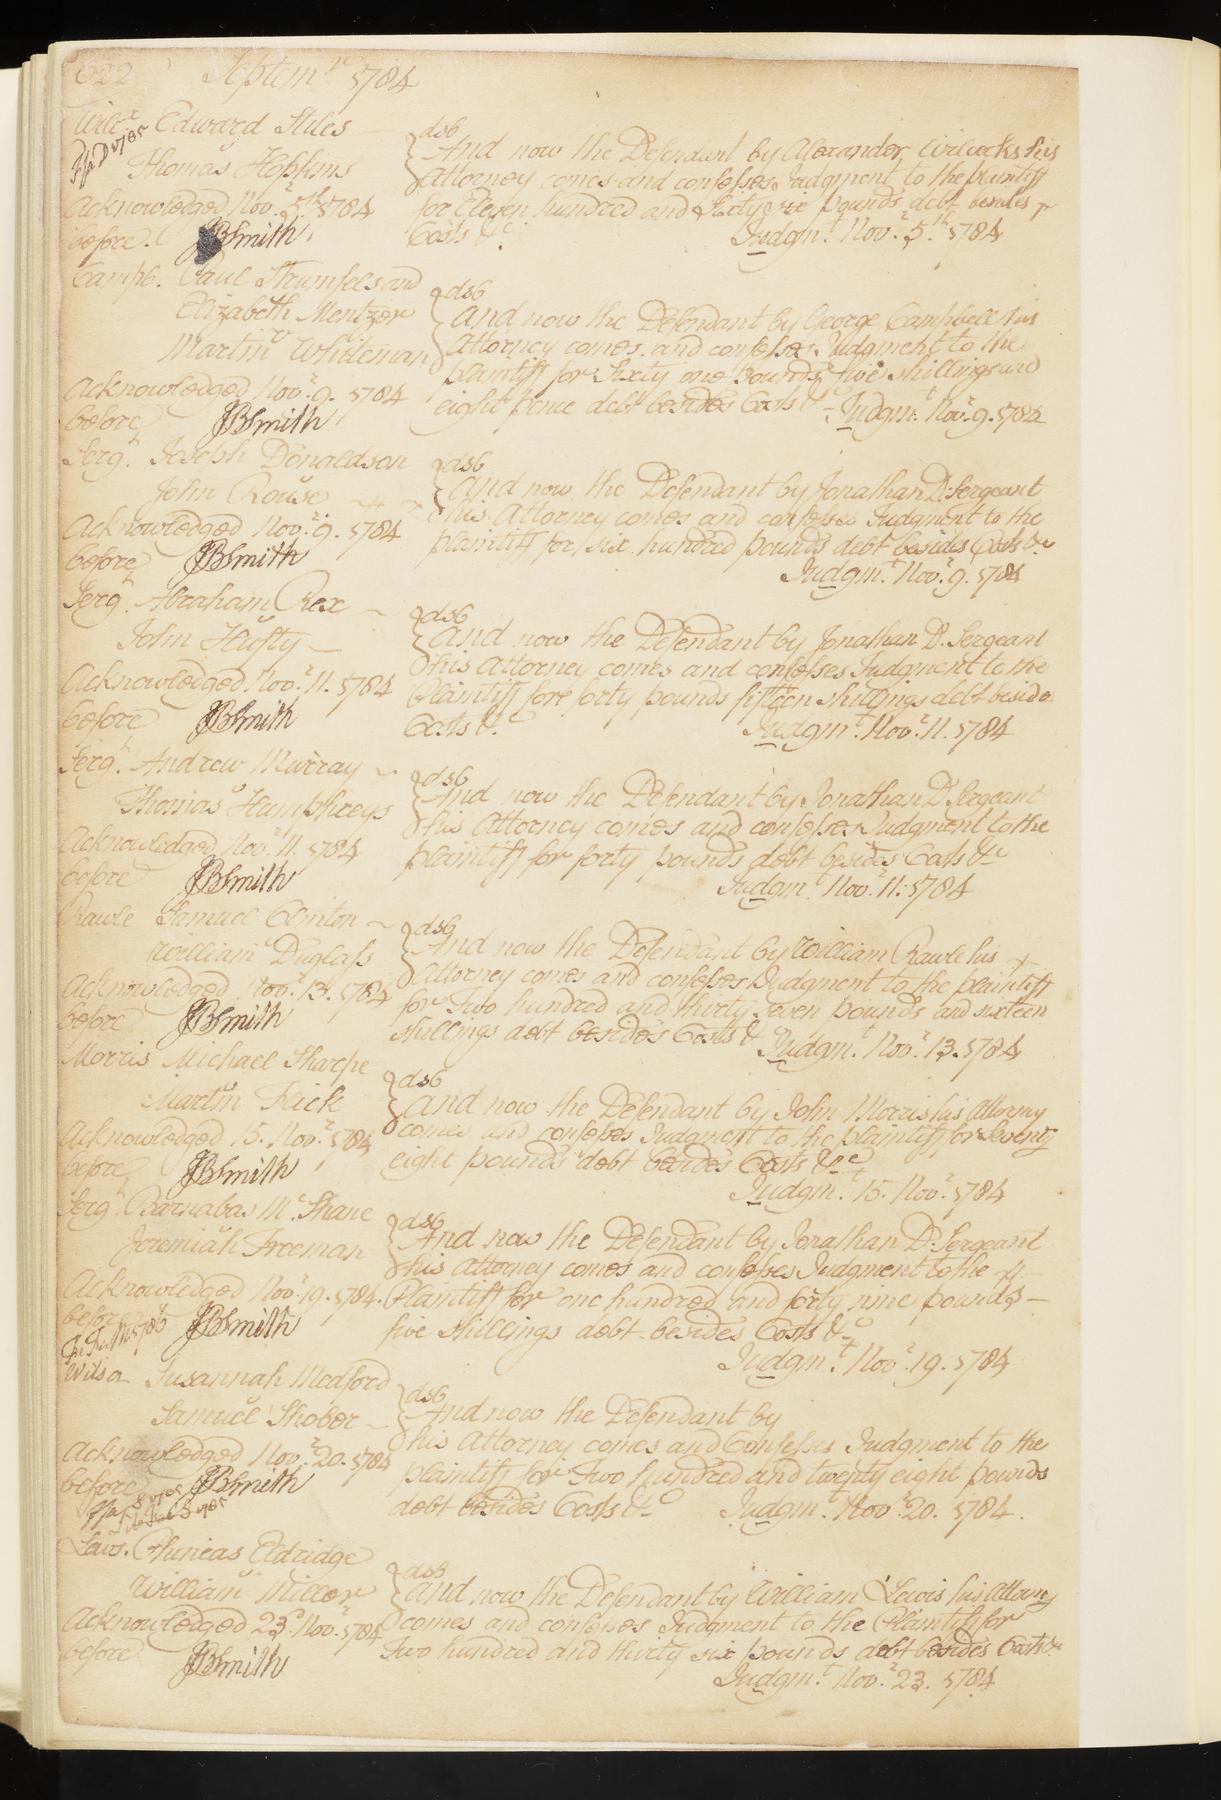 622 Septem.r 1784
Wilc.x Edward Stiles
v
Thomas Hopkins
Acknowledged Nov.r 5th 1784
before JBSmith
dsb
And now the Defendant by Alexander Wilcocks his
Attorney comes and confesses Judgment to the plaintiff
for Eleven hundred and pounds debt besides
Costs &c.
Judgm.t Nov.r 5.th 1784
Campb. Paul Strumfels and
Elizabeth Mentzer
v
Martin Whiteman
Acknowledged Nov.r 9. 1784
before JBSmith
dsb
And now the Defendant by George Campbell his
Attorney comes and confesses Judgment to the
plaintiff for Sixty one Pounds five shillings and
eight pence debt besides Costs &c
Judgm.t Nov.r 9. 1784
Serg.t Joseph Donaldson
v
John Rouse
Acknowledged Nov.r 9. 1784
before JBSmith
dsb
And now the Defendant by Jonathan D. Sergeant
his Attorney comes and confesses Judgment to the
plaintiff for six hundred pounds debt besides Costs &c
Judgm.t Nov.r 9. 1784
Serg.t Abraham Rex
v
John Hufty
Acknowledged Nov.r 11. 1784
before JBSmith
dsb
And now the Defendant by Jonathan D. Sergeant
his Attorney comes and confesses Judgment to the
Plaintiff fore forty pounds fifteen shillings debt beside
Costs &c
Judgm.t Nov.r 11. 1784
Serg.t Andrew Murray
v
Thomas Humphreys
Acknowledged Nov.r 11. 1784
before JBSmith
dsb
And now the Defendant by Jonathan D. Sergeant
his Attorney comes and confesses Judgment to the
plaintiff for forty pounds debt besides Costs &c
Judgm.t Nov.r 11. 1784
Rawle Samuel Clinton
v
William Duglass
Acknowledged Nov.r 13. 1784
before JBSmith
dsb
And now the Defendant by William Rawle his
Attorney comes and confesses Judgment to the plaintiff
for Two hundred and thirty seven pounds and sixteen
shillings debt besides Costs &c
Judgm.t Nov.r 13. 1784
Morris Michael Sharpe
v
Martin Frick
Acknowledged 15. Nov.r 1784
before JBSmith
dsb
And now the Defendant by John Morris his Attorny
comes and confesses Judgment to the plaintiff for Seventy
eight pounds debt besides Costs &c
Judgm.t 15. Nov.r 1784
Serg.t Barnabas Mc.Shane
v
Jeremiah Freeman
Acknowledged Nov.r 19. 1784.
before JBSmith
dsb
And now the Defendant by Jonathan D. Sergeant
his Attorney comes and confesses Judgment to the
Plaintiff for one hundred and forty nine pounds
five shillings debt besides Costs &c
Judgm.t Nov.r 19. 1784
Wilson Susannah Medford
v
Samuel Shober
Acknowledged Nov.r 20. 1784
before JBSmith
dsb
And now the Defendant by
his Attorney comes and Confesses Judgment to the
plaintiff for Two hundred and twenty eight pounds
debt besides Costs &c Judgm.t Nov.r 20. 1784.
Lew.s. Phineas Eldridge
v
William Miller
Acknowledged 23.d Nov.r 1784
before JBSmith
dsb
And now the Defendant by William Lewis his Attorny
comes and confesses Judgment to the Plaintiff for
Two hundred and thirty six pounds debt besides Costs &c
Judgm.t Nov.r 23. 1784